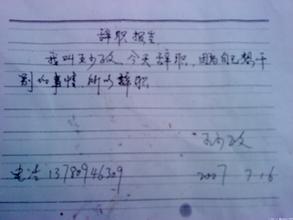 辞职报告
我叫王少政、今天辞职、因为自己想干
别的事情,所以辞职
王少政
电话 13780946309
2007 7.16